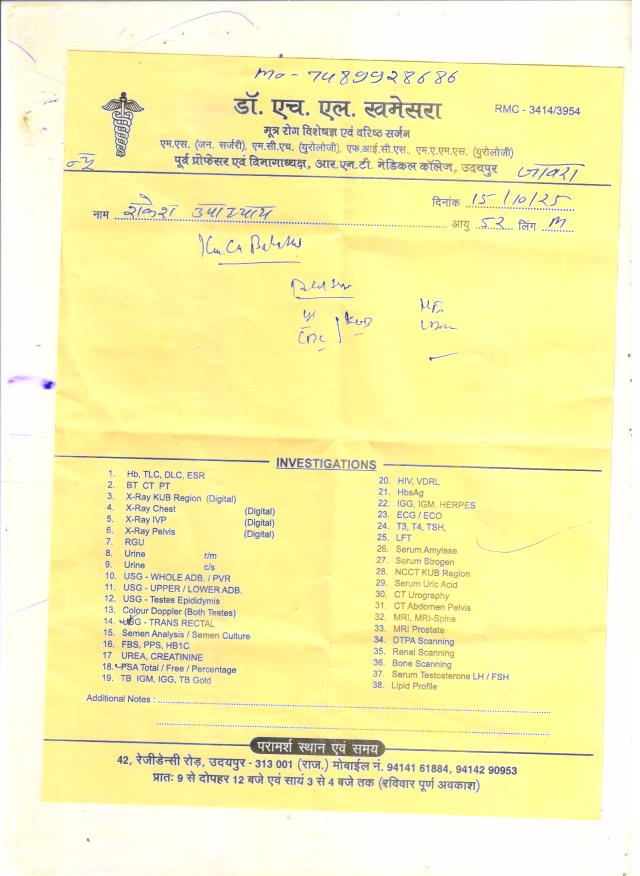 Mo - 7489928686
डॉ. एच. एल. खमेसरा
RMC - 3414/3954
मूत्र रोग विशेषज्ञ एवं वरिष्ठ सर्जन
एम.एस. (जन. सर्जरी), एम.सी.एच. (युरोलोजी), एफ.आई.सी.एस., एम.ए.एम.एस. (युरोलोजी)
पूर्व प्रोफेसर एवं विभागाध्यक्ष, आर.एन.टी. मेडिकल कॉलेज, उदयपुर जावरा
दिनांक 15/10/25
नाम राकेश उपाध्याय आयु 52 लिंग M
INVESTIGATIONS
1. Hb, TLC, DLC, ESR
2. BT CT PT
3. X-Ray KUB Region (Digital)
4. X-Ray Chest (Digital)
5. X-Ray IVP (Digital)
6. X-Ray Pelvis (Digital)
7. RGU
8. Urine r/m
9. Urine c/s
10. USG - WHOLE ADB. / PVR
11. USG - UPPER / LOWER ADB.
12. USG - Testes Epididymis
13. Colour Doppler (Both Testes)
14. USG - TRANS RECTAL
15. Semen Analysis / Semen Culture
16. FBS, PPS, HB1C
17 UREA, CREATININE
18. PSA Total / Free / Percentage
19. TB IGM, IGG, TB Gold
20. HIV, VDRL
21. HbsAg
22. IGG, IGM, HERPES
23. ECG / ECO
24. T3, T4, TSH,
25. LFT
26. Serum Amylase
27. Serum Strogen
28. NCCT KUB Region
29. Serum Uric Acid
30. CT Urography
31. CT Abdomen Pelvis
32. MRI, MRI-Spine
33. MRI Prostate
34. DTPA Scanning
35. Renal Scanning
36. Bone Scanning
37. Serum Testosterone LH / FSH
38. Lipid Profile
Additional Notes :
परामर्श स्थान एवं समय
42, रेजीडेन्सी रोड़, उदयपुर - 313 001 (राज.) मोबाईल नं. 94141 61884, 94142 90953
प्रातः 9 से दोपहर 12 बजे एवं सायं 3 से 4 बजे तक (रविवार पूर्ण अवकाश)